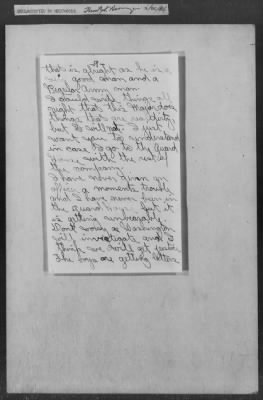 that is alright as he is a
very good man and a
Regular Army man.
I could write things all
night that this Major does
things that are real dirty
but I will not. I just
want you to understand
in case I go to the guard
House with the rest of
the company.
I have never given an
officer a moments trouble
and I have never been in
the guard House. but it
is getting unbearable.
Dont worry as Washington
will investigate and I
think we will get justice
The boys are getting letters